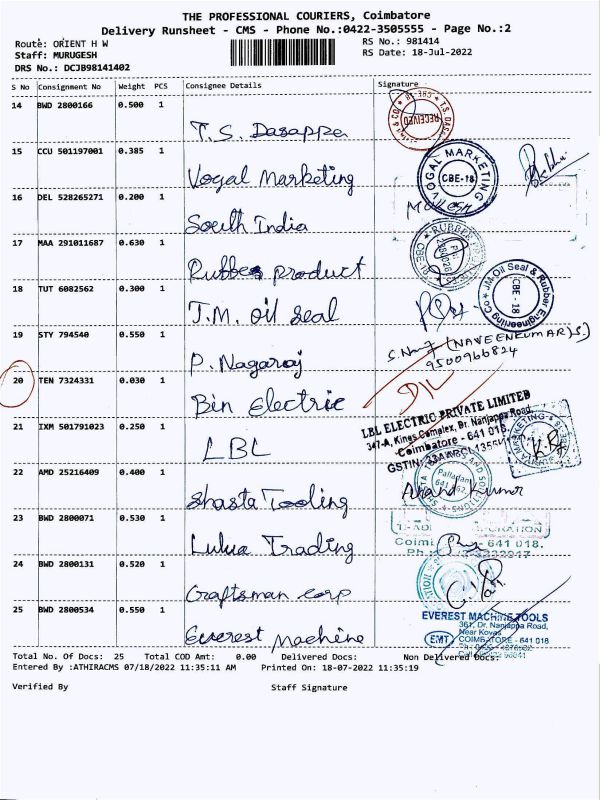 THE PROFESSIONAL COURIERS, Coimbatore
Delivery Runsheet - CMS - Phone No.:0422-3505555 - Page No.:2
Route: ORIENT H W
RS No.: 981414
Staff: MURUGESH
RS Date: 18-Jul-2022
DRS No.: DCJB98141402
S No Consignment No Weight PCS Consignee Details Signature
14 BWD 2800166 0.500 1
T.S. Dasappa
RECEIVED
15 CCU 501197001 0.385 1
Vogal Marketing
VOGAL MARKETING
CBE-18
16 DEL 528265271 0.200 1
South India
17 MAA 291011687 0.630 1
Rubber product
18 TUT 6082562 0.300 1
J.M. oil seal
JM-Oil Seal & Rubber Engineering Co
CBE - 18
19 STY 794540 0.550 1
P. Nagaraj
(NAVEENKUMAR)S.
9500966824
20 TEN 7324331 0.030 1
Bin Electric
D/L
21 IXM 501791023 0.250 1
LBL
LBL ELECTRIC PRIVATE LIMITED
347-A, Kings Complex, Dr. Nanjappa Road,
Coimbatore - 641 018.
GSTIN:
22 AMD 25216409 0.400 1
Shasta Tooling
Palladam
Anand Kumar
23 BWD 2800071 0.530 1
Lulua Trading
641 018.
24 BWD 2800131 0.520 1
Craftsman corp
25 BWD 2800534 0.550 1
Everest Machine
EVEREST MACHINE TOOLS
361, Dr. Nanjappa Road,
Near Kovas
EMT COIMBATORE - 641 018
Total No. Of Docs: 25 Total COD Amt: 0.00 Delivered Docs: Non Delivered Docs:
Entered By :ATHIRACMS 07/18/2022 11:35:11 AM Printed On: 18-07-2022 11:35:19
Verified By Staff Signature